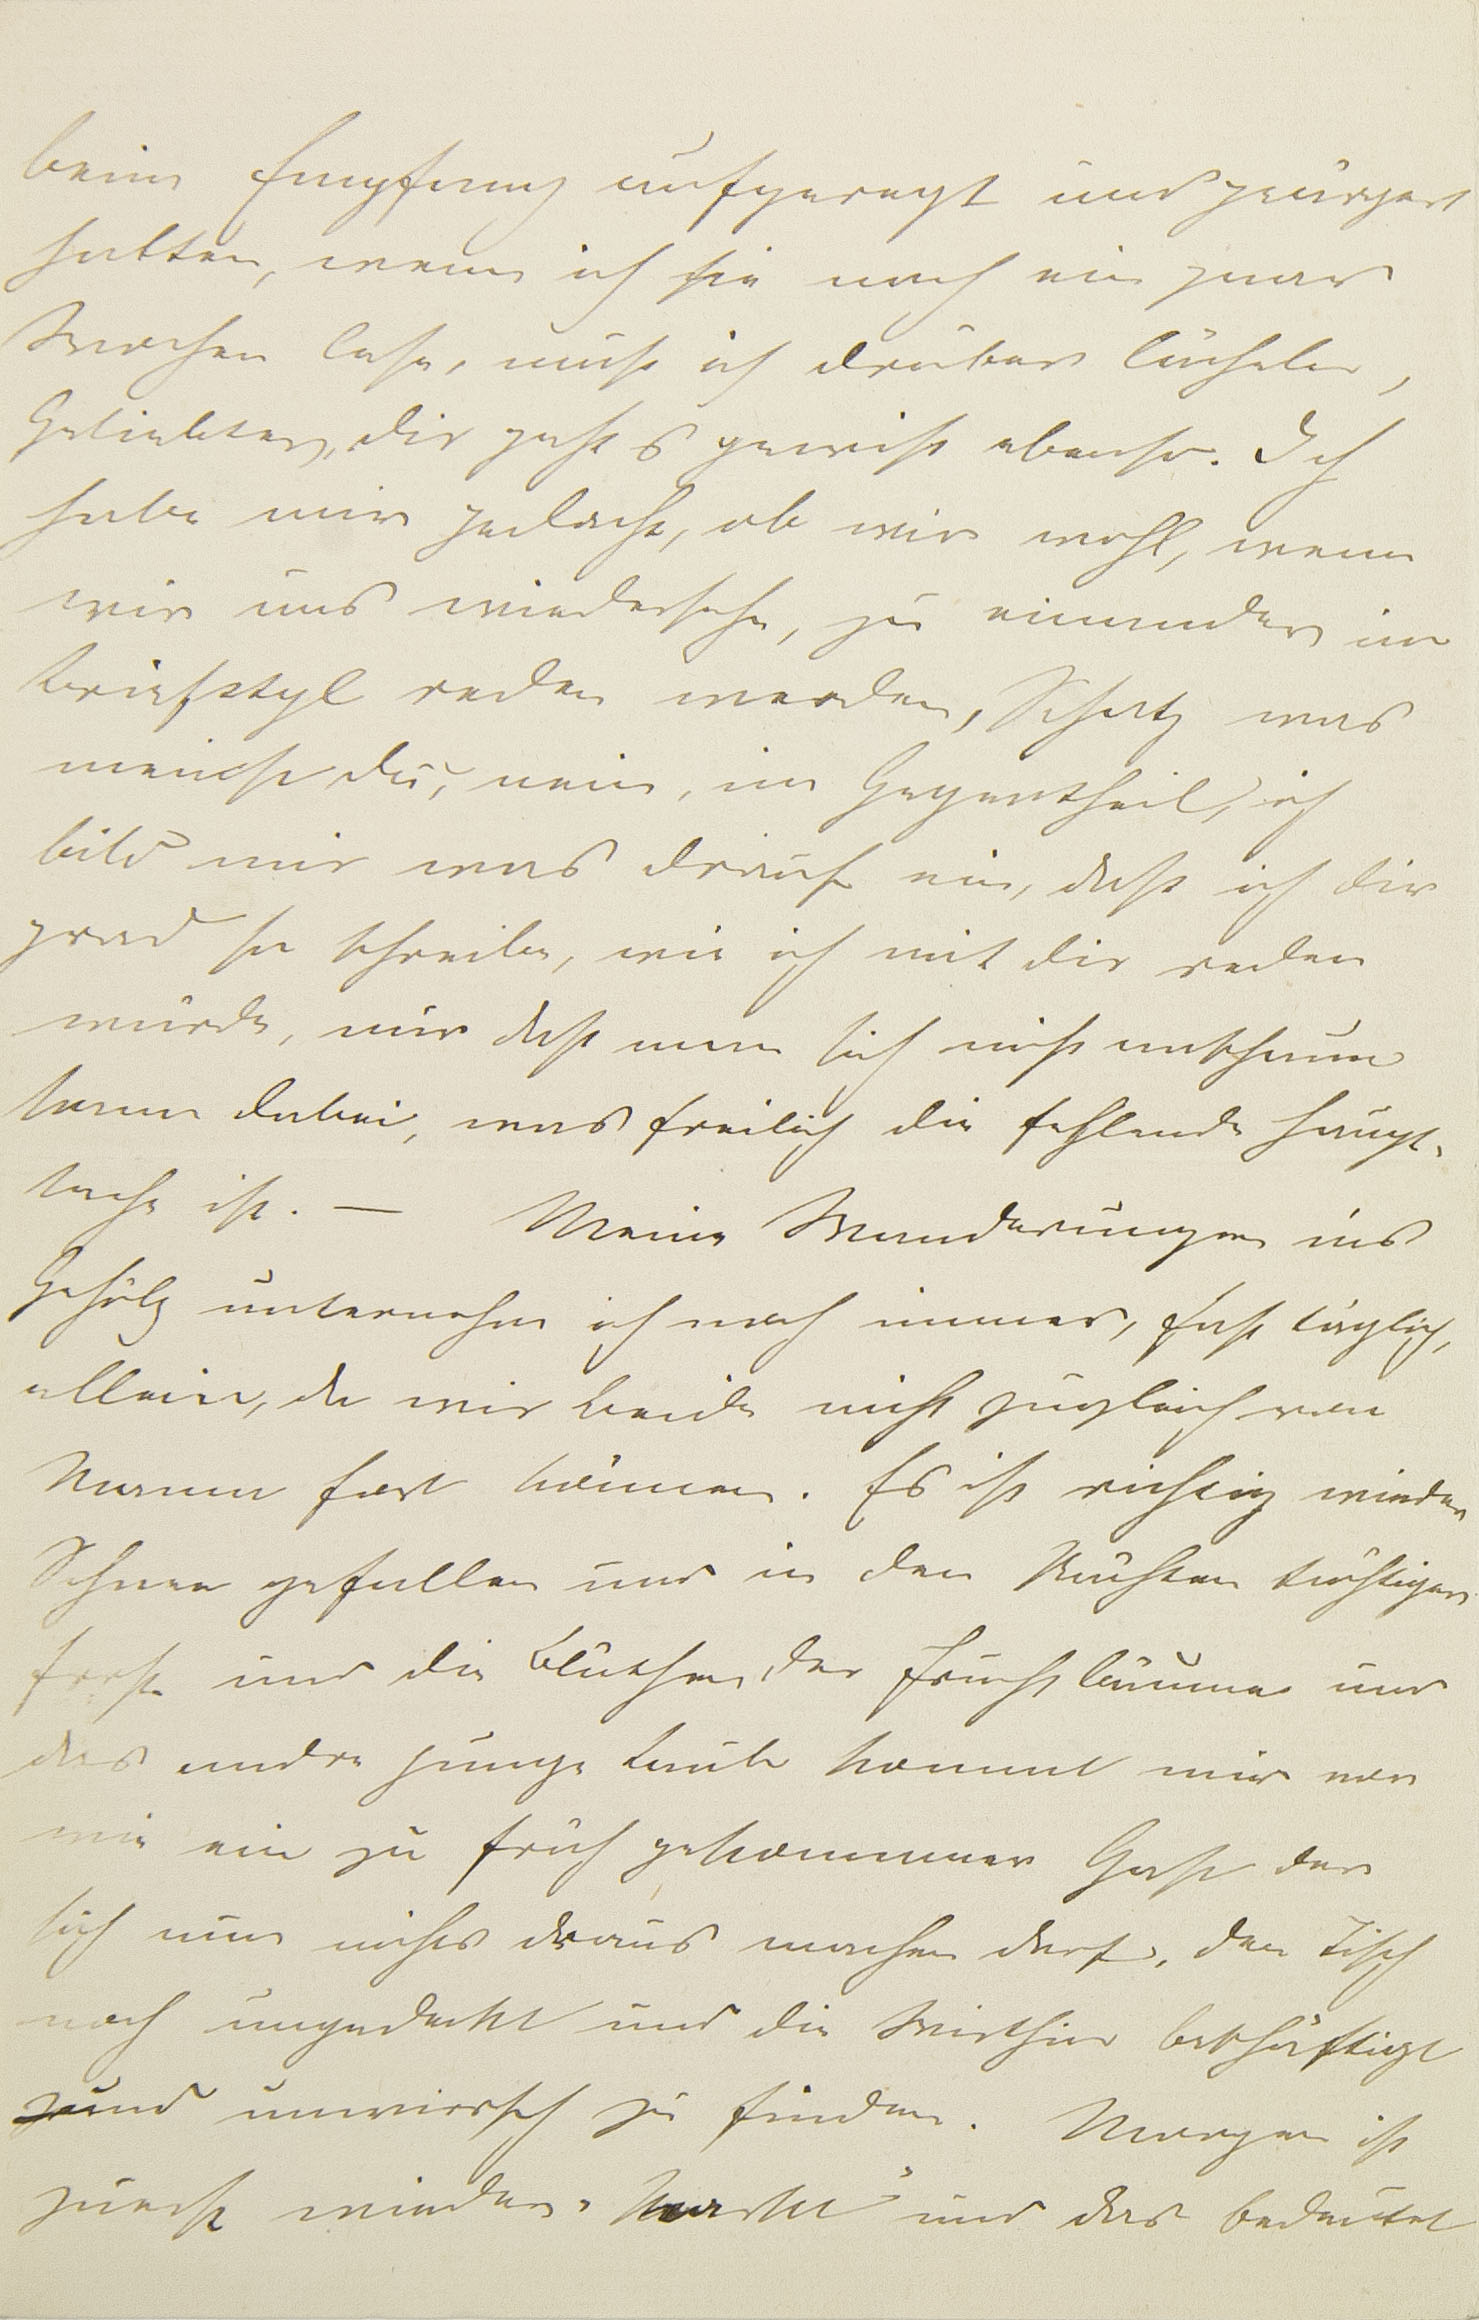 beim Empfang aufgeregt und geärgert
hatten, wenn ich sie nach ein paar
Wochen lese, muß ich drüber lächeln,
Geliebter, dir geht's gewiß ebenso. Ich
habe mir gedacht, ob wir wohl, wenn
wir uns wiedersehn, zu einander im
Briefstyl reden werden, Schatz was
meinst du, nein, im Gegentheil, ich
bild mir was drauf ein, daß ich dir
grad so schreibe, wie ich mit dir reden
würde, nur daß man sich nicht anschaun
kann dabei, was freilich die fehlende Haupt-
sache ist. — Meine Wanderungen ins
Gehölz unternehm ich noch immer, fast täglich,
allein, da wir beide nicht zugleich von
Mama fort können. Es ist richtig wieder
Schnee gefallen und in den Nächten tüchtiger
Frost und die Blüthen der Fruchtbäume und
das andre junge Laub kommt mir vor
wie ein zu früh gekommner Gast der
sich nun nichts draus machen darf, den Tisch
noch ungedeckt und die Wirthin beschäftigt
und unwirsch zu finden. Morgen ist
zuerst wieder „Markt" und das bedeutet